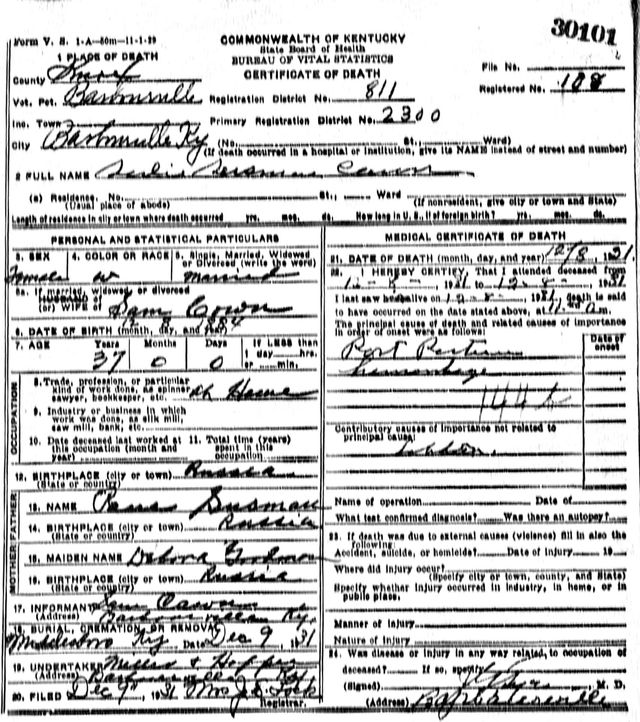 30101
Form V. S. 1-A-50m-11-1-29
COMMONWEALTH OF KENTUCKY
State Board of Health
BUREAU OF VITAL STATISTICS
CERTIFICATE OF DEATH
1 PLACE OF DEATH
County Knox
File No.
Vot. Pct. Barbourville
Registration District No. 811
Registered No. 108
Inc. Town
Primary Registration District No. 2300
City Barbourville Ky (No. St.; Ward)
(If death occurred in a hospital or institution, give its NAME instead of street and number)
2 FULL NAME Susman
(a) Residence. No. St.; Ward
(Usual place of abode) (If nonresident, give city or town and State)
Length of residence in city or town where death occurred yrs. mos. ds. How long in U. S., if of foreign birth? yrs. mos. ds.
PERSONAL AND STATISTICAL PARTICULARS
3. SEX 4. COLOR OR RACE 5. Single, Married, Widowed
or Divorced (write the word)
Female W Married
5a. If married, widowed or divorced
HUSBAND of
(or) WIFE of Sam Cown
6. DATE OF BIRTH (month, day, and year)
7. AGE Years Months Days If LESS than
1 day hrs.
or min.
37 0 0
OCCUPATION
8. Trade, profession, or particular
kind of work done, as spinner,
sawyer, bookkeeper, etc. At Home
9. Industry or business in which
work was done, as silk mill,
saw mill, bank, etc.
10. Date deceased last worked at
this occupation (month and
year)
11. Total time (years)
spent in this
occupation
12. BIRTHPLACE (city or town) Russia
(State or country)
FATHER
13. NAME Susman
14. BIRTHPLACE (city or town) Russia
(State or country)
MOTHER
15. MAIDEN NAME Debora Goodman
16. BIRTHPLACE (city or town) Russia
(State or country)
17. INFORMANT Sam
(Address) Barbourville Ky.
18. BURIAL, CREMATION, OR REMOVAL
Middlesboro Ky Date Dec 9 1931
19. UNDERTAKER Millers & Hopper
(Address) Barbourville Ky
20. FILED Dec 9" 1931 Mrs J.
Registrar.
MEDICAL CERTIFICATE OF DEATH
21. DATE OF DEATH (month, day, and year) 12/8, 1931.
22. I HEREBY CERTIFY, That I attended deceased from
12-8-, 1931 to 12-8-, 1931
I last saw h alive on 12-8-, 1931, death is said
to have occurred on the date stated above, at m.
The principal cause of death and related causes of importance
in order of onset were as follows:
Date of
onset
Post Partum
hemorrhage
144
Contributory causes of importance not related to
principal cause:
Name of operation Date of
What test confirmed diagnosis? Was there an autopsy?
23. If death was due to external causes (violence) fill in also the
following:
Accident, suicide, or homicide? Date of injury 19
Where did injury occur?
(Specify city or town, county, and State)
Specify whether injury occurred in industry, in home, or in
public place.
Manner of injury
Nature of injury
24. Was disease or injury in any way related to occupation of
deceased? If so, specify
(Signed) M. D.
(Address) Barbourville